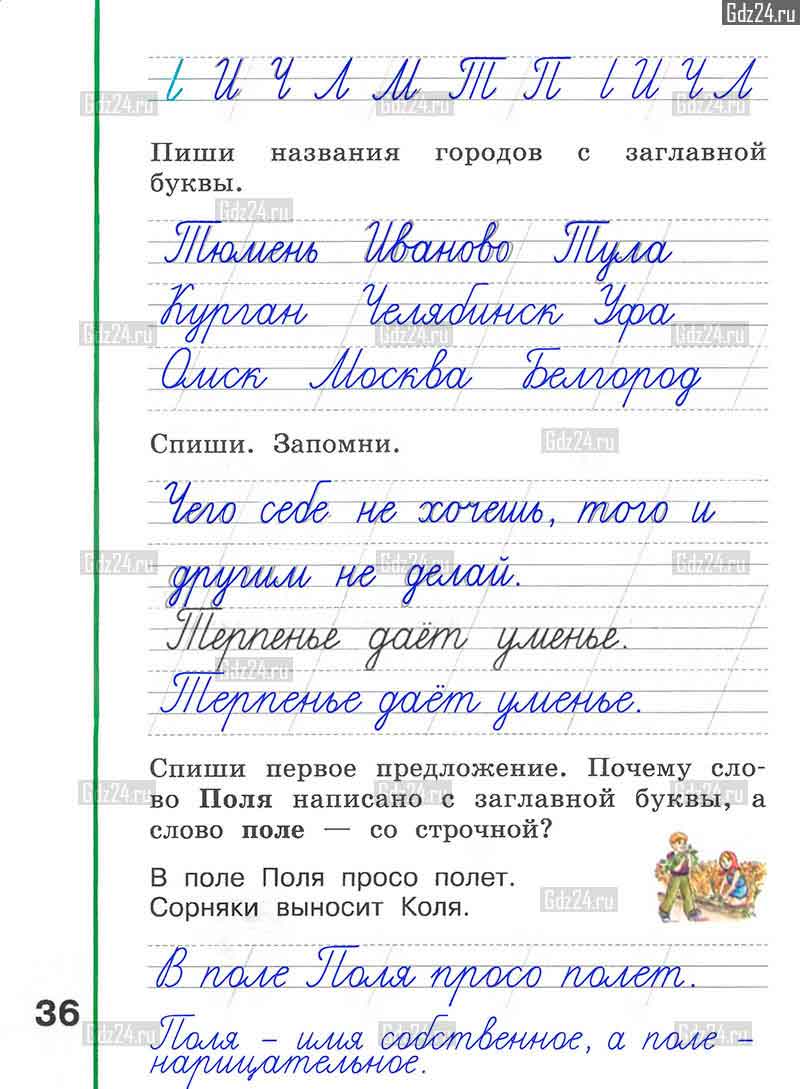 Gdz24.ru
И Ч Л М Т П И Ч Л
Пиши названия городов с заглавной
буквы.
Тюмень Иваново Тула
Курган Челябинск Уфа
Омск Москва Белгород
Спиши. Запомни.
Чего себе не хочешь, того и
другим не делай.
Терпенье даёт уменье.
Терпенье даёт уменье.
Спиши первое предложение. Почему сло-
во Поля написано с заглавной буквы, а
слово поле — со строчной?
В поле Поля просо полет.
Сорняки выносит Коля.
В поле Поля просо полет.
36
Поля - имя собственное, а поле -
нарицательное.